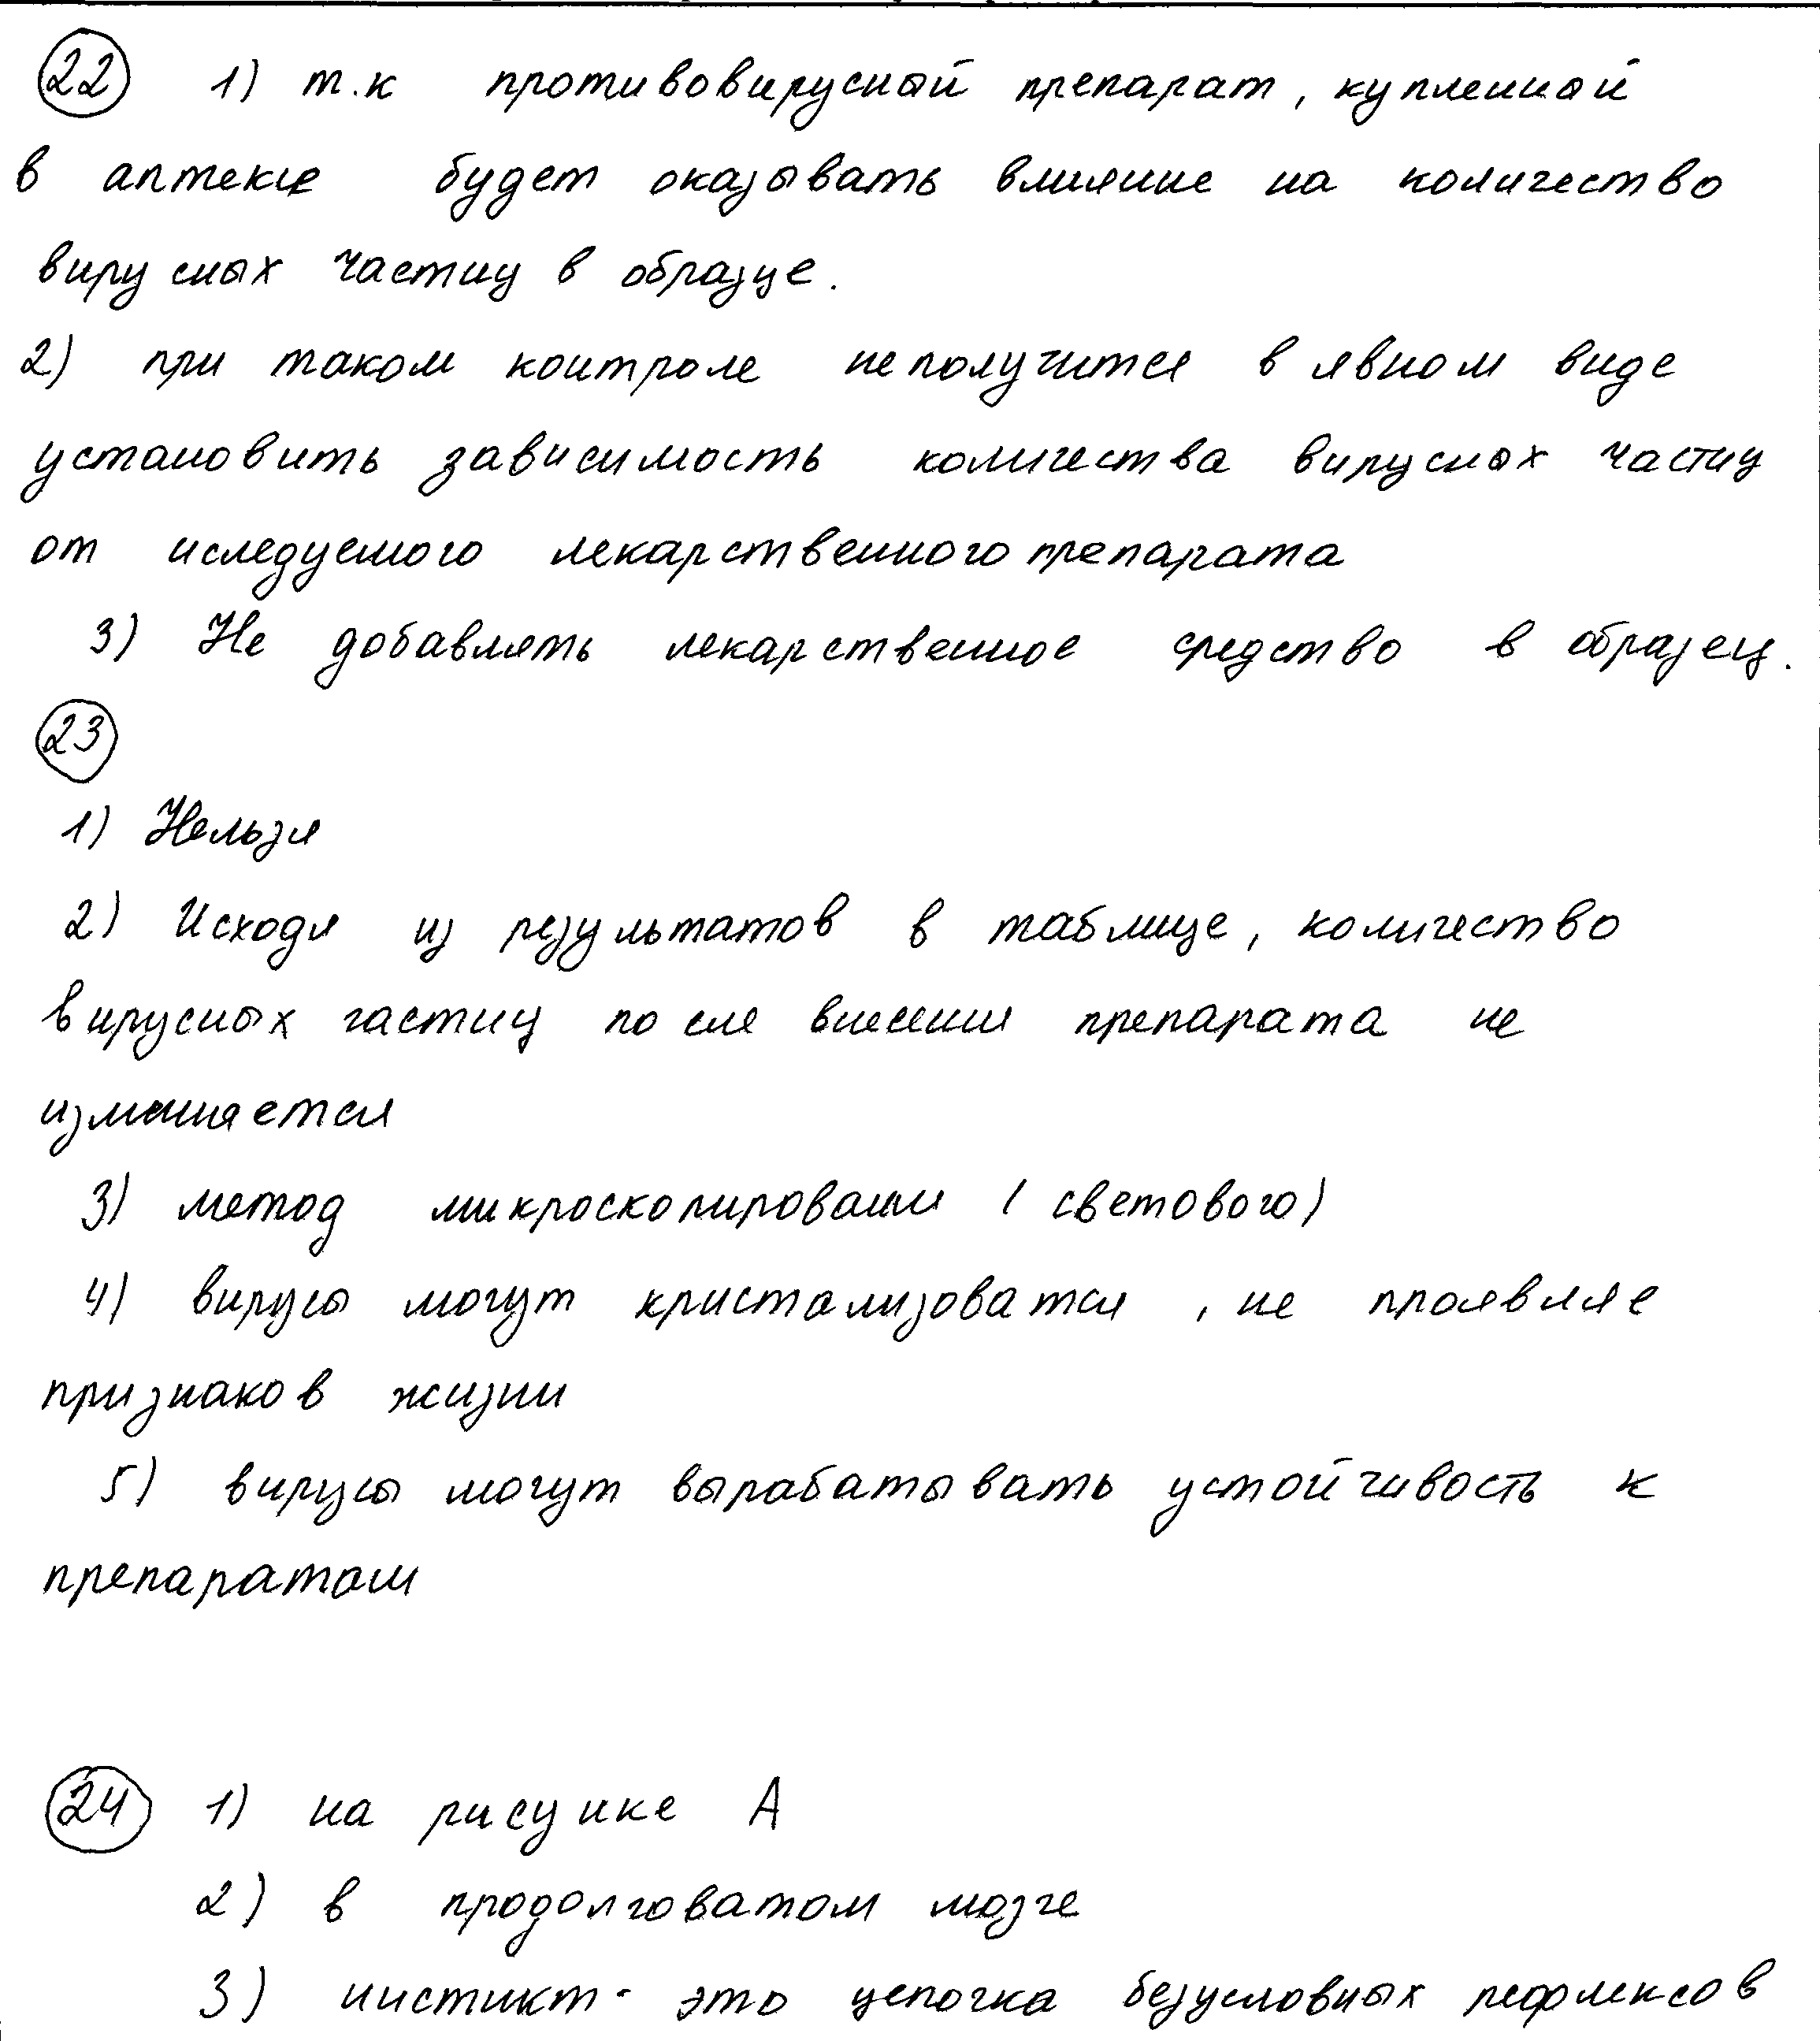 22 1) т.к противовирусный препарат, купленный
в аптеке будет оказывать влияние на количество
вирусных частиц в образце.
2) при таком контроле не получится в явном виде
установить зависимость количества вирусных частиц
от иследуемого лекарственного препарата
3) Не добавлять лекарственное средство в образец.
23
1) Нельзя
2) Исходя из результатов в таблице, количество
вирусных частиц после внесения препарата не
изменяется
3) метод микроскопирования (светового)
4) вирусы могут кристализоватся, не проявляя
признаков жизни
5) вирусы могут вырабатывать устойчивость к
препаратам
24 1) на рисунке А
2) в продолговатом мозге
3) инстикт - это цепочка безусловных рефлексов